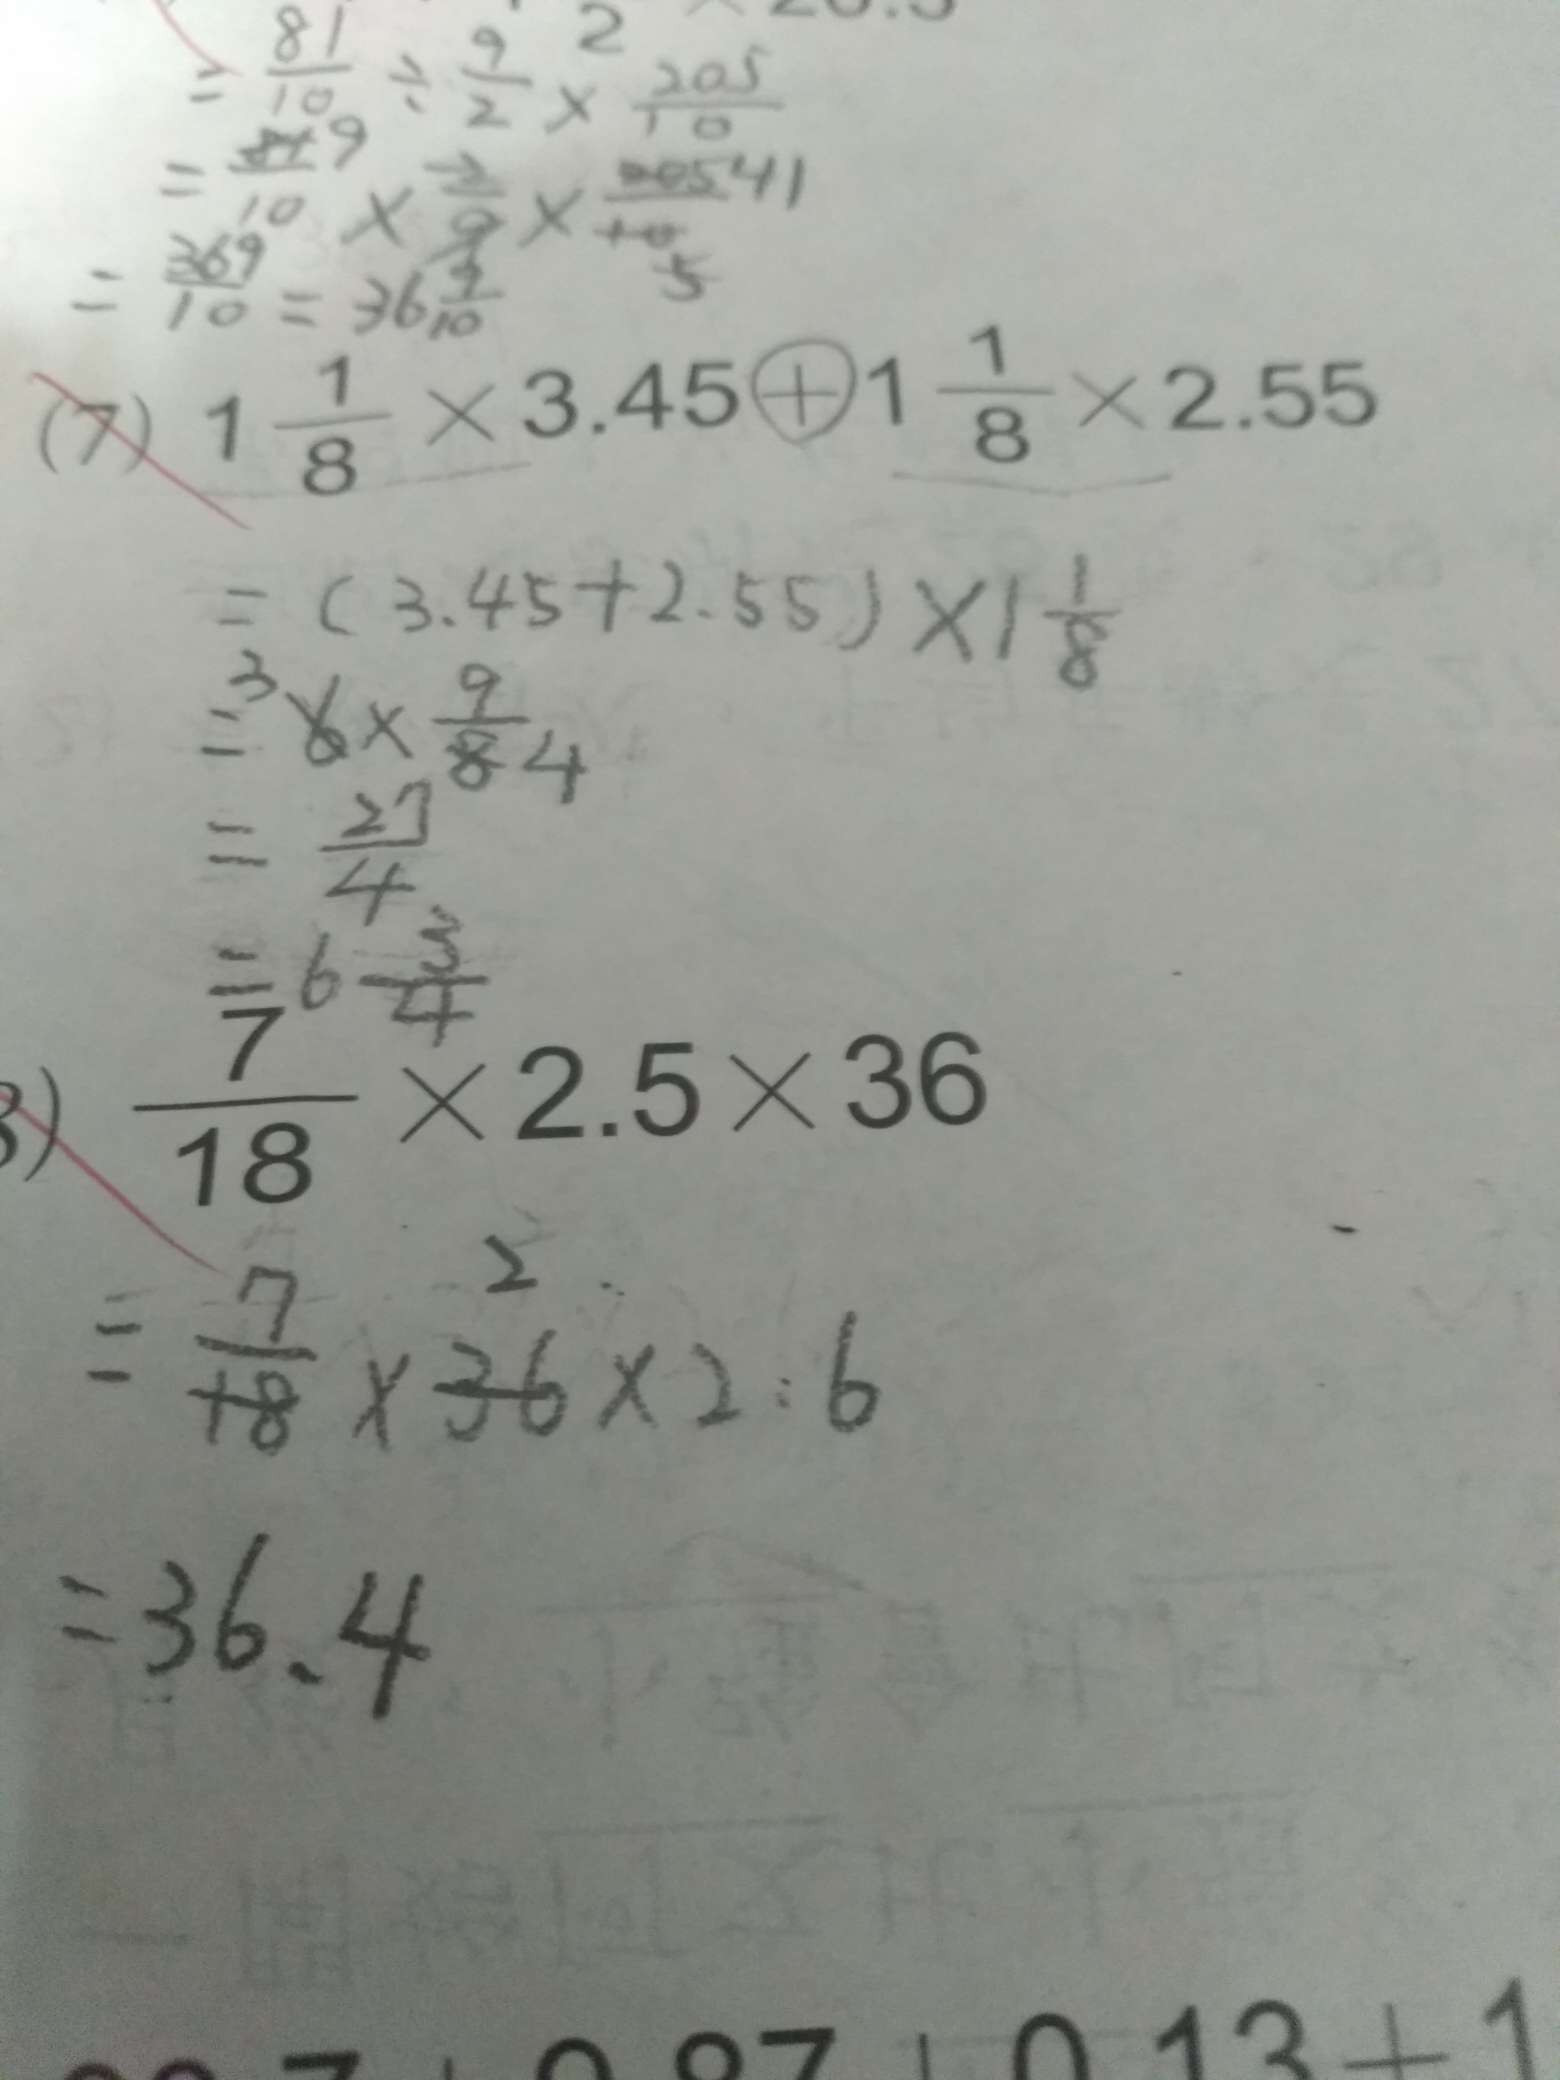 2
= 81/10 ÷ 9/2 × 205/10
= 9/10 × 2/9 × 205 41/10 5
= 369/10 = 36 9/10
(7) 1 1/8 × 3.45 + 1 1/8 × 2.55
= (3.45+2.55) × 1 1/8
= 3 6 × 9/8 4
= 27/4
= 6 3/4
) 7/18 × 2.5 × 36
2
= 7/18 × 36 × 2.6
= 36.4
7 + 0.87 + 0.13 + 1